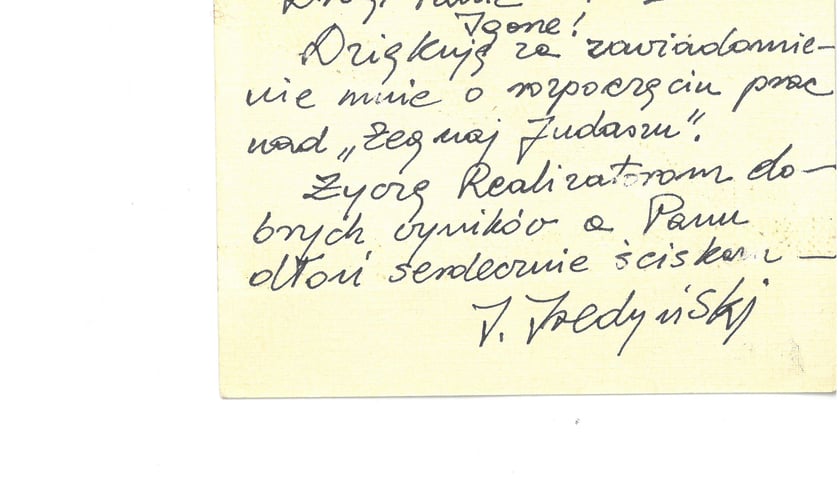 Drogi Panie
Igorze!
Dziękuję za zawiadomie-
nie mnie o rozpoczęciu prac
nad „Żegnaj Judaszu”.
Życzę Realizatorom do-
brych wyników a Panu
dłoń serdecznie ściskam —
I. Iredyński